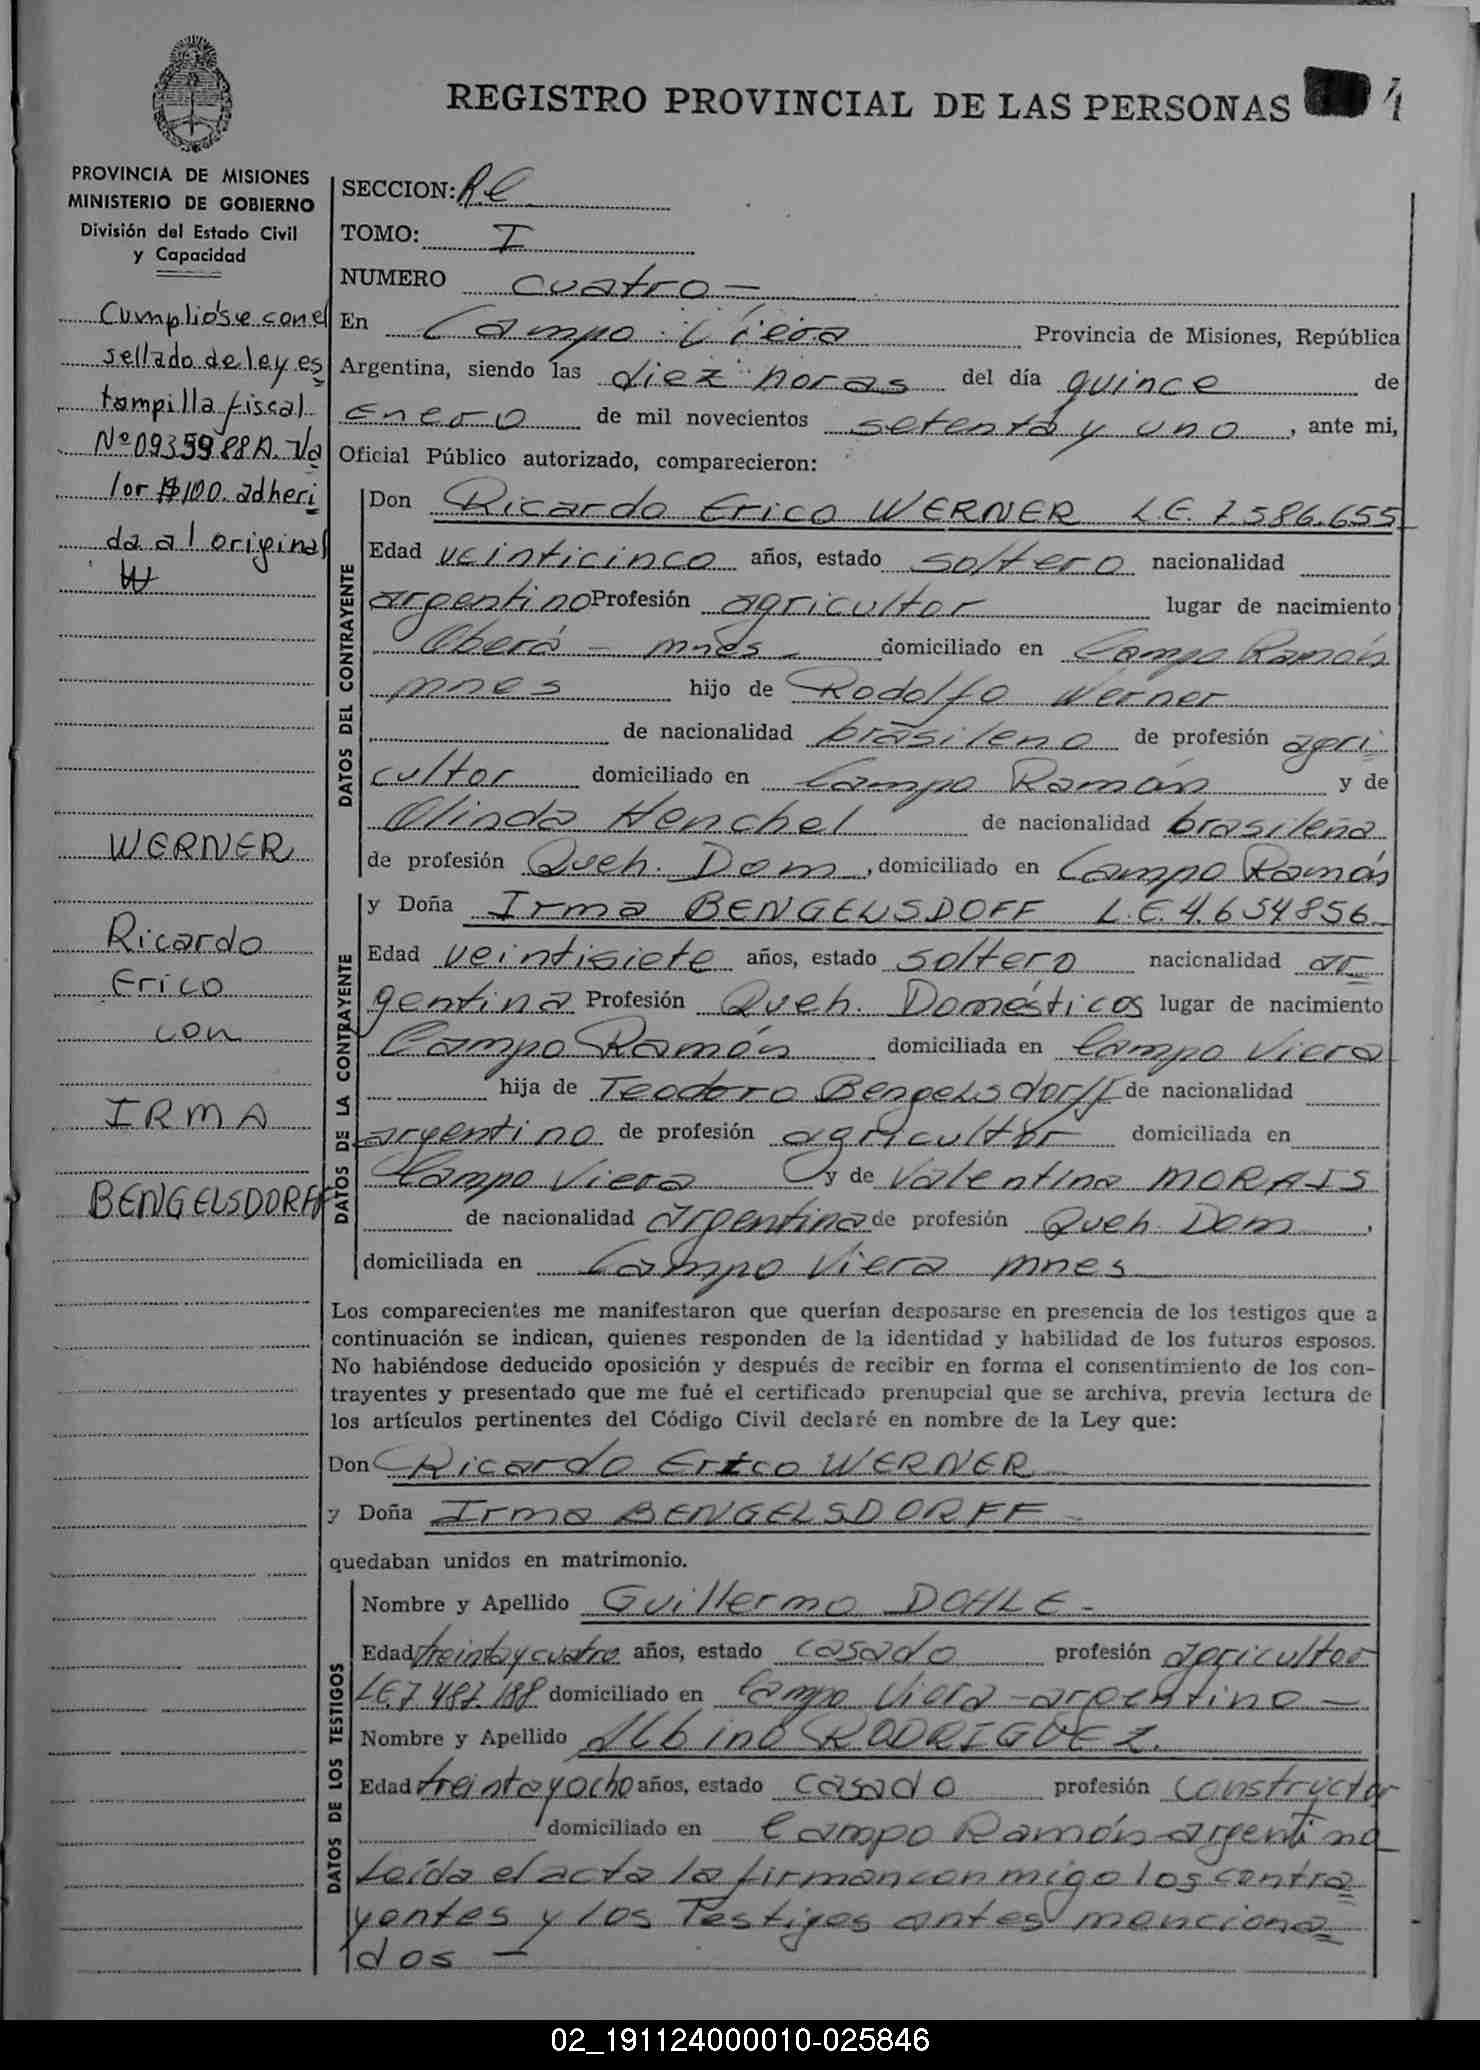 REGISTRO PROVINCIAL DE LAS PERSONAS 4
PROVINCIA DE MISIONES
MINISTERIO DE GOBIERNO
División del Estado Civil
y Capacidad
Cumplióse con el
sellado de ley es
tampilla fiscal
Nº 0935988A. Va
lor $100. adheri
da al original
WERNER
Ricardo
Erico
con
IRMA
BENGELSDORFF
SECCION: R.C
TOMO: I
NUMERO cuatro -
En Campo Viera Provincia de Misiones, República
Argentina, siendo las diez horas del día quince de
Enero de mil novecientos setenta y uno, ante mi,
Oficial Público autorizado, comparecieron:
DATOS DEL CONTRAYENTE
Don Ricardo Erico WERNER L.E. 7.586.655
Edad veinticinco años, estado soltero nacionalidad
argentino Profesión agricultor lugar de nacimiento
Oberá - mnes - domiciliado en Campo Ramón
mnes hijo de Rodolfo Werner
de nacionalidad brasileno de profesión agri
cultor domiciliado en Campo Ramón y de
Olinda Henchel de nacionalidad brasileña
de profesión Queh. Dom, domiciliado en Campo Ramón
DATOS DE LA CONTRAYENTE
y Doña Irma BENGELSDOFF L.E. 4.654856
Edad veintisiete años, estado soltero nacionalidad ar
gentina Profesión Queh. Domésticos lugar de nacimiento
Campo Ramón domiciliada en Campo Viera
hija de Teodoro Bengelsdorff de nacionalidad
argentino de profesión agricultor domiciliada en
Campo Viera y de Valentina MORAIS
de nacionalidad argentina de profesión Queh. Dom,
domiciliada en Campo Viera mnes
Los comparecientes me manifestaron que querían desposarse en presencia de los testigos que a
continuación se indican, quienes responden de la identidad y habilidad de los futuros esposos.
No habiéndose deducido oposición y después de recibir en forma el consentimiento de los con-
trayentes y presentado que me fué el certificado prenupcial que se archiva, previa lectura de
los artículos pertinentes del Código Civil declaré en nombre de la Ley que:
Don Ricardo Erico WERNER
y Doña Irma BENGELSDORFF -
quedaban unidos en matrimonio.
DATOS DE LOS TESTIGOS
Nombre y Apellido Guillermo DOHLE -
Edad treinta y cuatro años, estado casado profesión agricultor
L.E. 7.487.188 domiciliado en Campo Viera - argentino -
Nombre y Apellido Albino RODRIGUEZ.
Edad treinta y ocho años, estado casado profesión constructor
domiciliado en Campo Ramón argentino
Leída el acta la firman conmigo los contra
yentes y los Testigos antes menciona
dos -
02_191124000010-025846